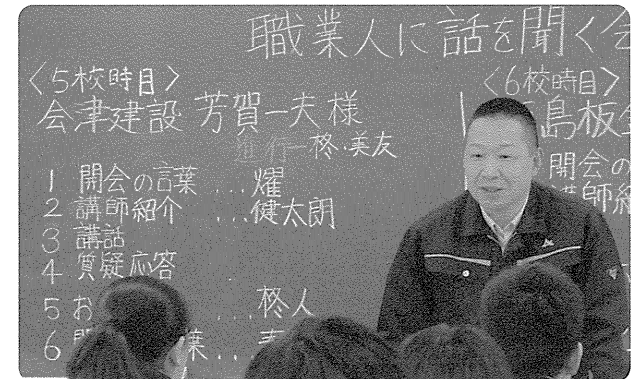 職業人に話を聞く会
<5校時目>
会津建設 芳賀一夫様
進行一柊・美友
1 開会の言葉 ...燿
2 講師紹介 ...健太朗
3 講話
4 質疑応答
5 お ...柊人
6 葉...
<6校時目>
島板
開会の
講師紹